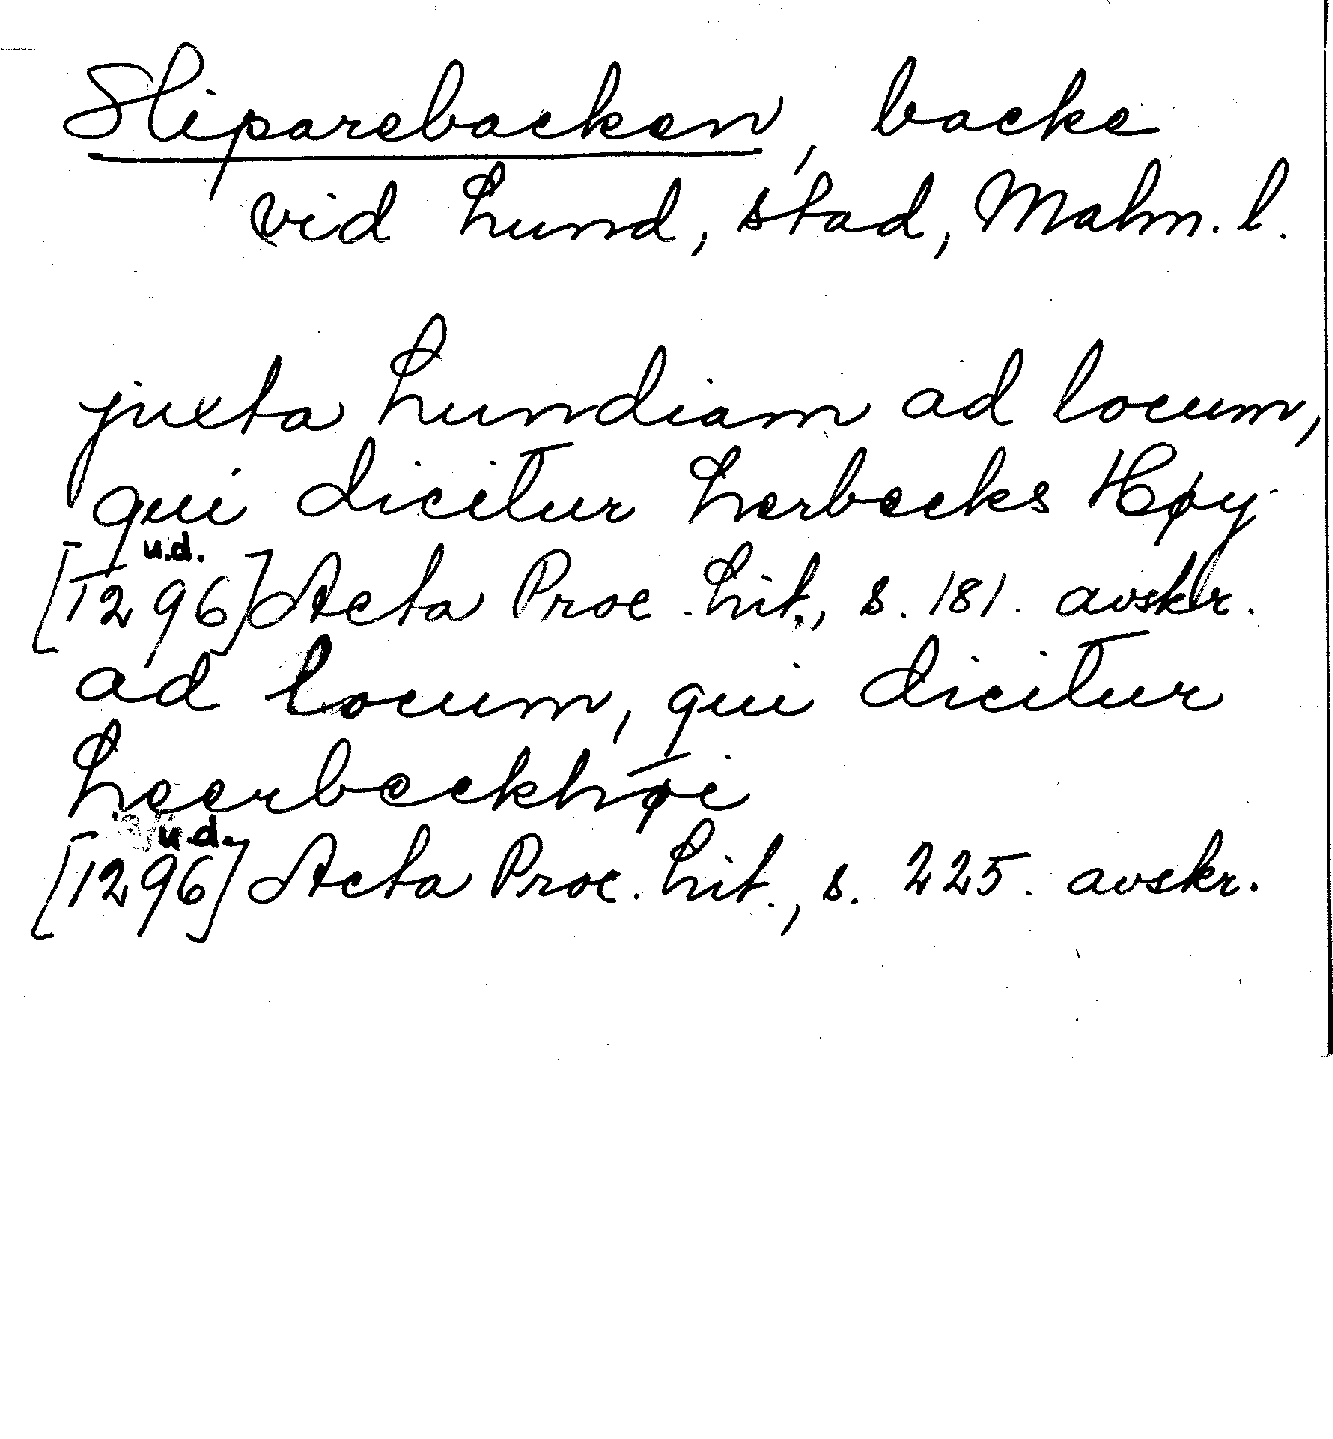 Sliparebacken, backe
vid Lund, stad, Malm. l.
juxta Lundiam ad locum,
qui dicitur Lerbecks Høy
u.d.
[1296] Acta Proc. Lit., s. 181. avskr.
ad locum, qui dicitur
Leerbeckhøi
u.d.
[1296] Acta Proc. Lit., s. 225. avskr.